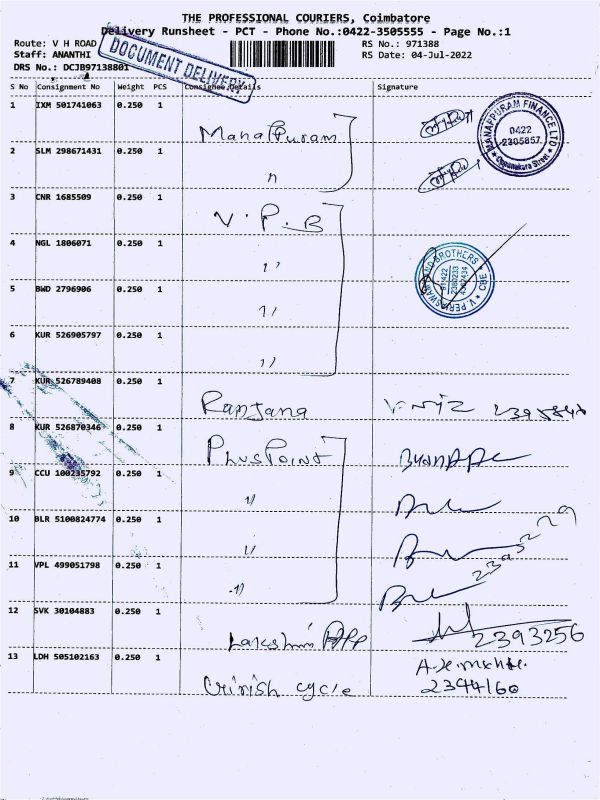 THE PROFESSIONAL COURIERS, Coimbatore
Delivery Runsheet - PCT - Phone No.:0422-3505555 - Page No.:1
Route: V H ROAD
RS No.: 971388
Staff: ANANTHI
RS Date: 04-Jul-2022
DRS No.: DCJB97138801
DOCUMENT DELIVERY
S No Consignment No Weight PCS Consignee Details Signature
1 IXM 501741063 0.250 1 Manappuram
MANAPPURAM FINANCE LTD
0422
2305857
Oppanakara Street
2 SLM 298671431 0.250 1 "
3 CNR 1685509 0.250 1 V.P.B
4 NGL 1806071 0.250 1 "
V. PERISWAMY AND BROTHERS CBE
5 BWD 2796906 0.250 1 "
6 KUR 526905797 0.250 1 "
7 KUR 526789408 0.250 1 Ranjana
8 KUR 526870346 0.250 1 Plus Point
9 CCU 100235792 0.250 1 "
10 BLR 5100824774 0.250 1 "
11 VPL 499051798 0.250 1 "
12 SVK 30104883 0.250 1 Lakshmi App 2393256
13 LDH 505102163 0.250 1 Crinish cycle 2344160